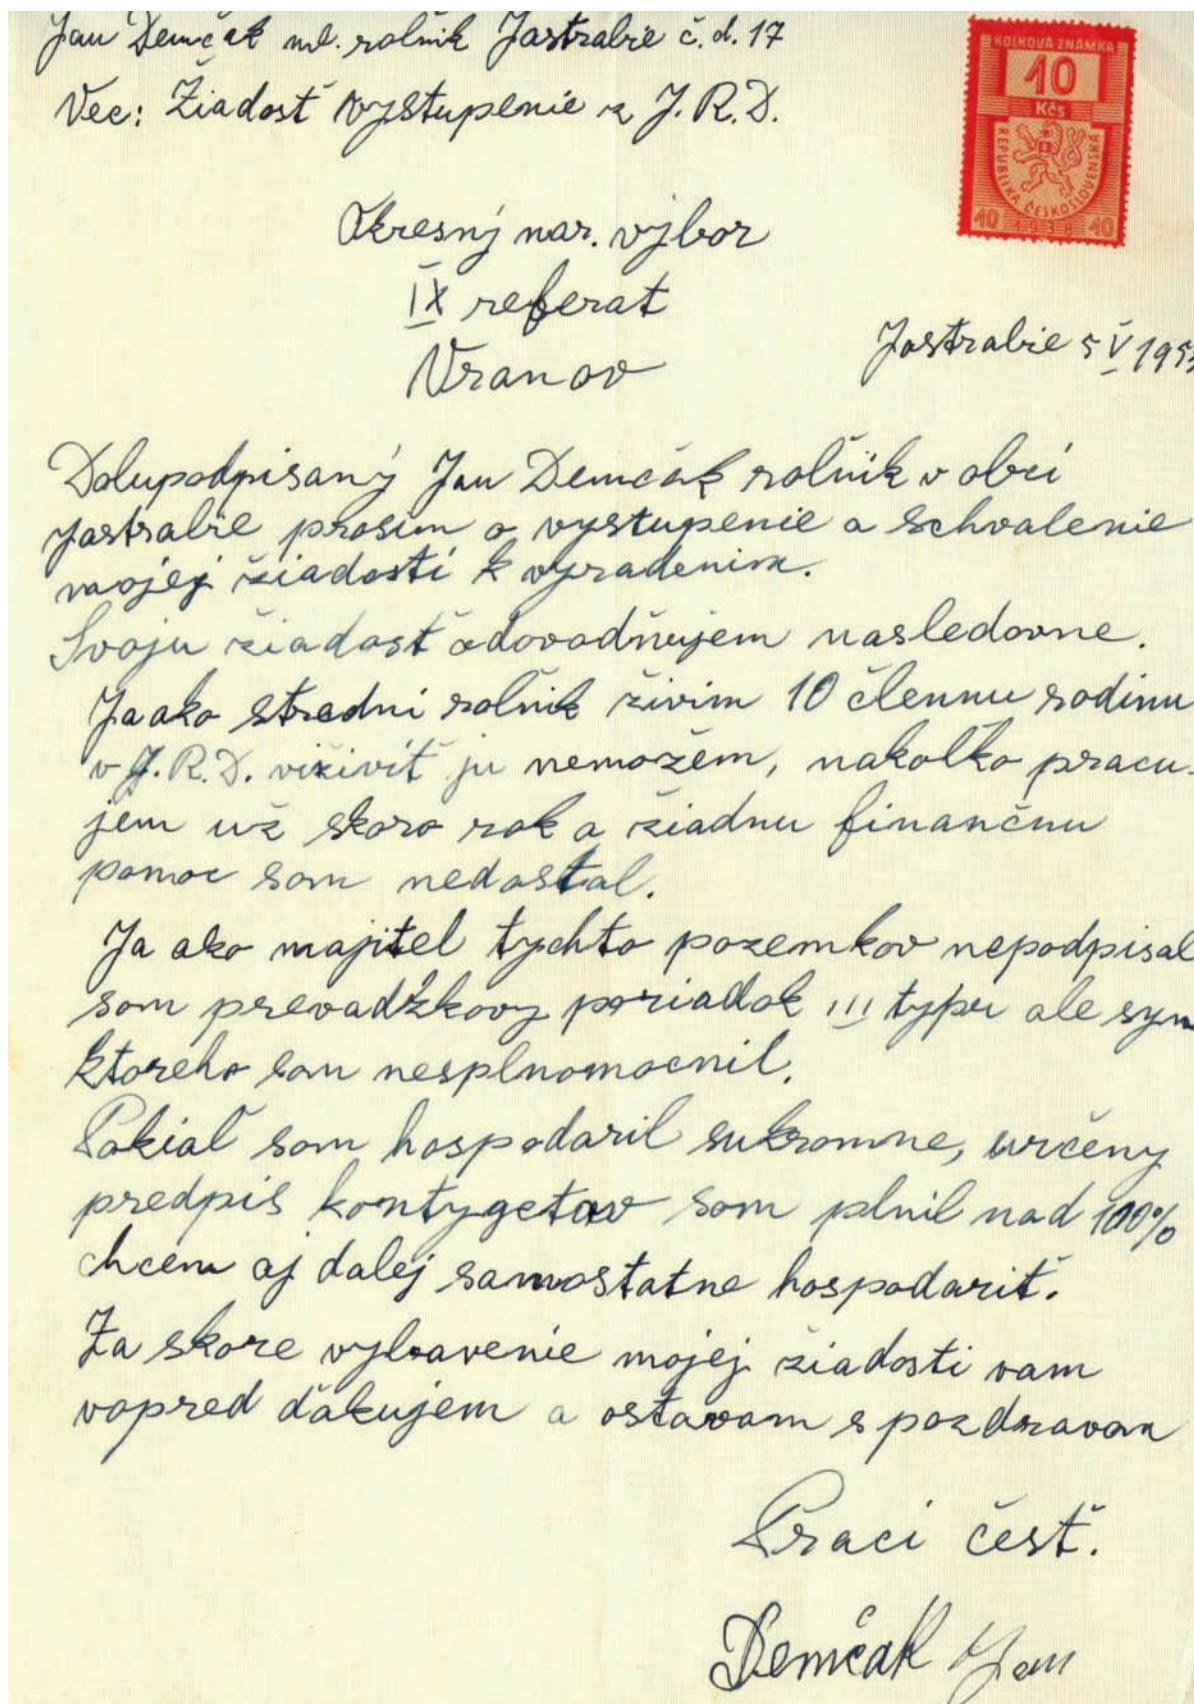 Jan Demčak ml. rolnik Jastrabie č. d. 17
Vec: Žiadosť vystupenie z J. R. D.
KOLKOVÁ ZNÁMKA
10
Kčs
REPUBLIKA ČESKOSLOVENSKÁ
10 1938 10
Okresný nar. výbor
IX referat
Vranov
Jastrabie 5 V 195
Dolupodpisaný Jan Demčak roľnik v obci
Jastrabie prosim o vystupenie a schvalenie
mojej žiadosti k vyradenim.
Svoju žiadosť odovodňujem nasledovne.
Ja ako stredni rolnik živim 10 člennu rodinu
v J. R. D. viživiť ju nemožem, nakoľko pracu-
jem už skoro rok a žiadnu finančnu
pomoc som nedostal.
Ja ako majitel tychto pozemkov nepodpisal
som prevadžkovy poriadok III typu ale syn
ktoreho som nesplnomocnil.
Pokiaľ som hospodaril sukromne, určeny
predpis kontygetov som plnil nad 100%
chcem aj dalej samostatne hospodariť.
Za skore vybavenie mojej žiadosti vam
vopred ďakujem a ostavam s pozdravom
Praci česť.
Demčak Jan